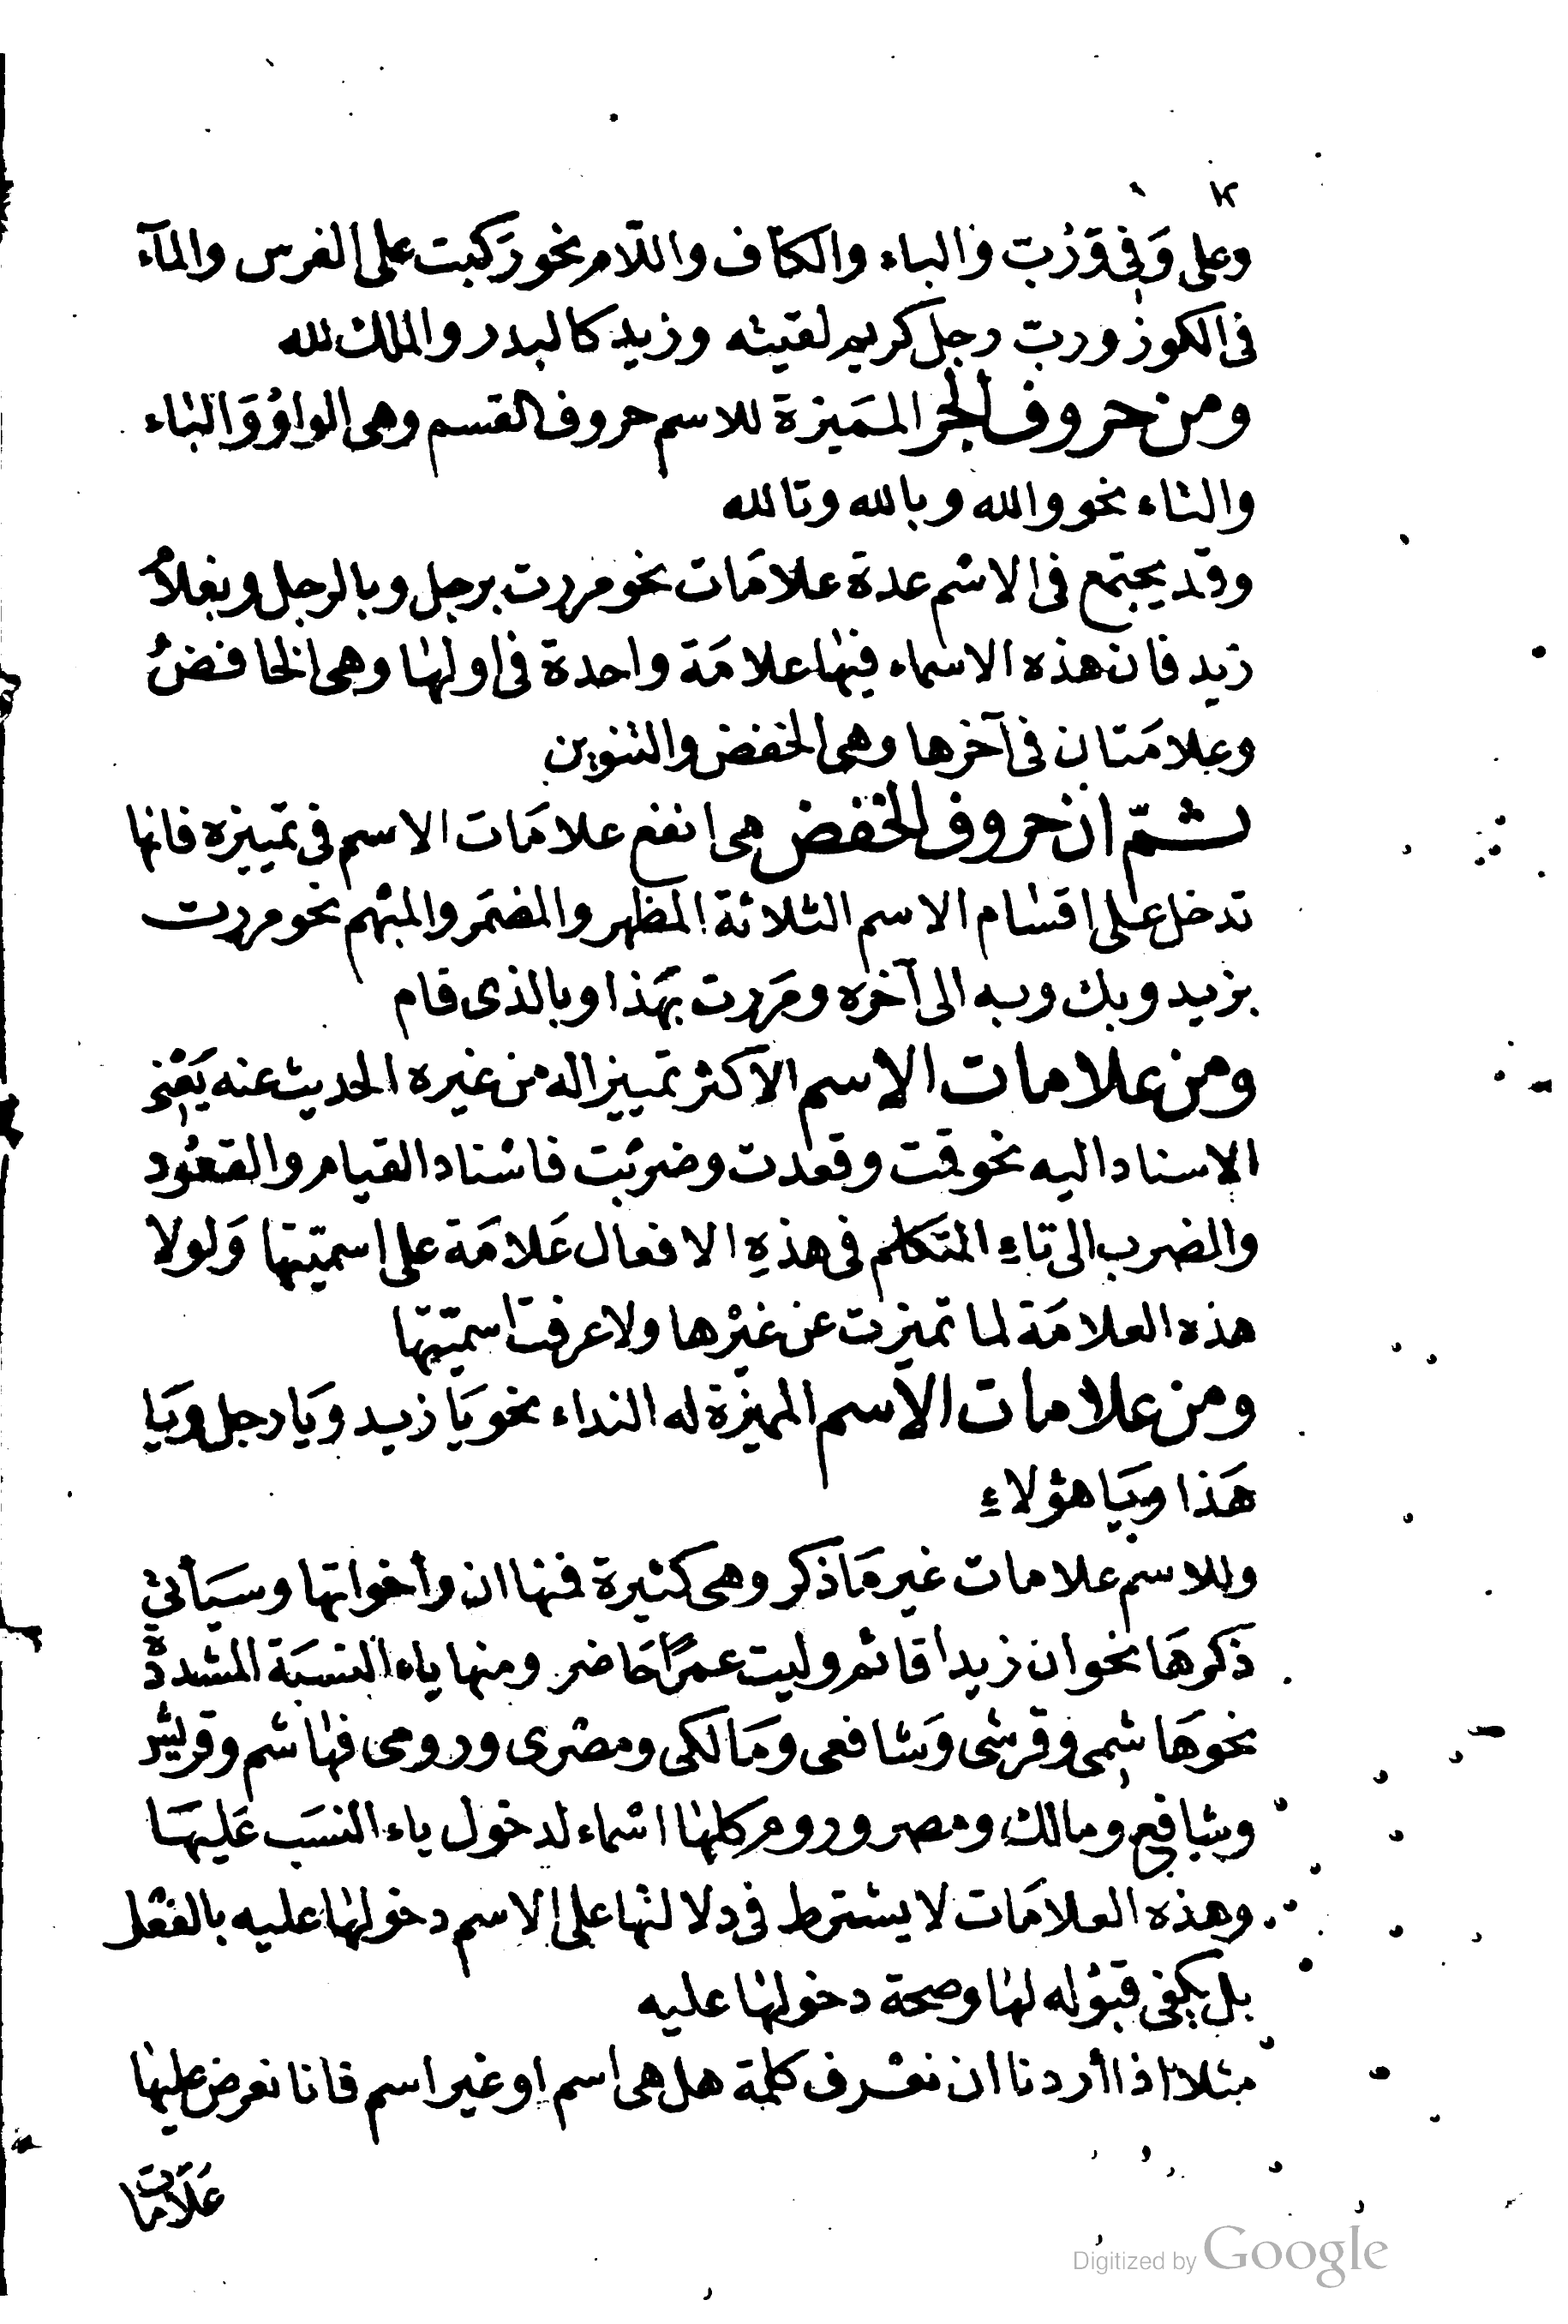 ١٢
وعلى وَفى وَرُبّ والباء والكاف واللّام نحو رَكبت على الفرس والمآء
فى الكوز وربّ رجل كريم لقيته وزيد كالبدر والملك لله
ومن حروف الجر المَميزة للاسم حروف القسم وهى الواوُ وَالباء
والتاء نحو والله وبالله وتالله
وقد يجتمع فى الاسْم عدة علامَات نحو مررت برجل وبالرجل وبغلامُ
زيد فان هذه الاسماء فيها علامَة واحدة فى اولها وهى الخافضُ
وعلامَتان فى آخرها وهى الخفض والتنوين
ثمّ ان حروف الخفض هى انفع علامَات الاسم فى تمييزه فانها
تدخل على اقسَام الاسم الثلاثة المظهر والمضمَر والمبْهم نحو مررت
بزيد وبك وبه الى آخره ومَررت بهَذا وبالذى قام
ومن علامات الاسم الاكثر تمييزا له من غيره الحديث عنه يَعْنى
الاسناد اليه نحو قمت وقعدت وضربْت فاسْناد القيام والقعُود
والضرب الى تاءِ المتَكلم فى هذهِ الافعال عَلامَة على اسميّتها وَلولا
هذه العلامَة لما تميزت عن غيْرها ولا عرفت اسميّتها
ومن علامات الاسم المميزة له النداء نحو يَا زيد ويَا رجل ويَا
هَذا ويَا هؤلاءِ
وللاسم علامات غير مَا ذكر وهى كثيرة فمنها ان وأخواتها وسيَأتي
ذكرهَا نحو ان زيدا قائم وليت عمرًا حَاضر ومنها ياء النسبَة المشددة
نحو هَاشِمى وقرشى وَشافعى ومَالكى ومصْرى ورومى فهاشم وقريش
وشافع ومالك ومصر وروم كلها اسْماء لدخول ياء النسَب عَليهَا
وهذه العلامَات لا يشترط فى دلالتها على الاسم دخولها عليه بالفعْل
بل يكفى قبوْله لها وصحة دخولها عليه
مثلا اذا أردنا ان نعْرف كلمة هل هى اسم او غير اسم فانا نعرض عليها
عَلَامَات
Digitized by Google